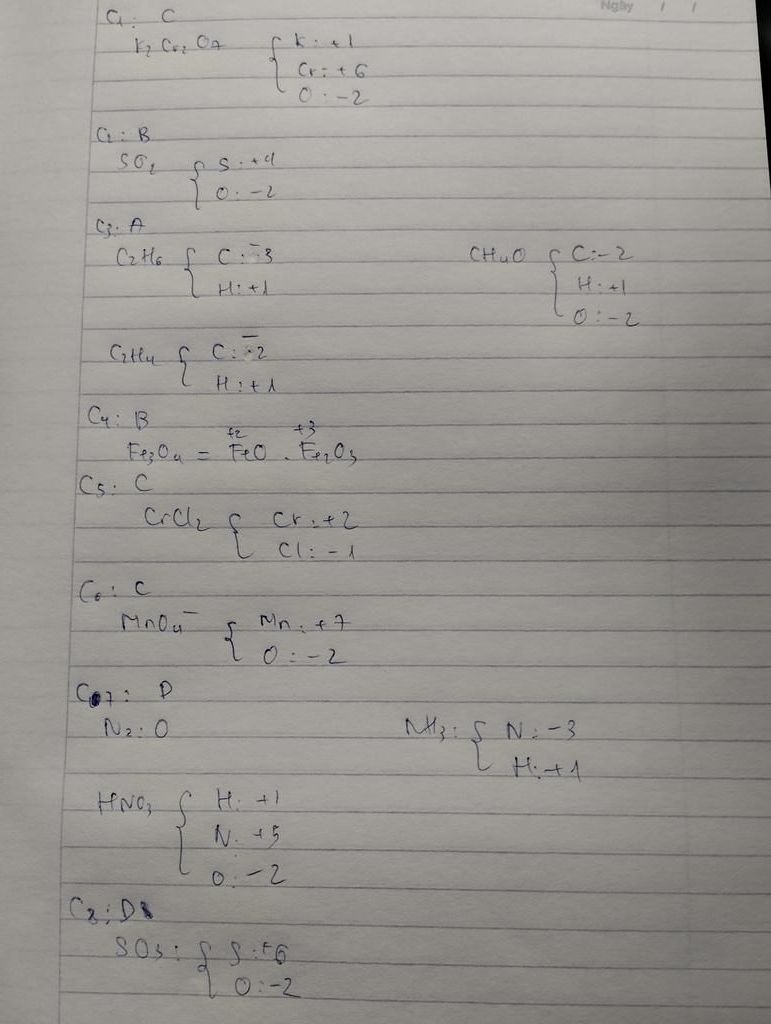 Ngày / /
C1: C
K2Cr2O7 { K: +1
Cr: +6
O: -2
C2: B
SO2 { S: +4
O: -2
C3: A
C2H6 { C: -3 CH4O { C: -2
H: +1 H: +1
O: -2
C2H4 { C: -2
H: +1
C4: B
+2 +3
Fe3O4 = FeO . Fe2O3
C5: C
CrCl2 { Cr: +2
Cl: -1
C6: C
MnO4- { Mn: +7
O: -2
C7: D
N2: O NH3: { N: -3
H: +1
HNO3 { H: +1
N: +5
O: -2
C8: D
SO3: { S: +6
O: -2